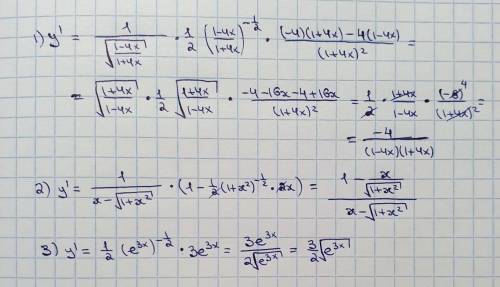 1) y' = 1/√((1-4x)/(1+4x)) · 1/2 ((1-4x)/(1+4x))^(-1/2) · ((-4)(1+4x)-4(1-4x))/(1+4x)² =
= √((1+4x)/(1-4x)) · 1/2 √((1+4x)/(1-4x)) · (-4-16x-4+16x)/(1+4x)² = 1/2 · (1+4x)/(1-4x) · (-8)⁴/(1+4x)² =
= -4/((1-4x)(1+4x))
2) y' = 1/(x-√(1+x²)) · (1-1/2(1+x²)^(-1/2) · 2x) = (1 - x/√(1+x²))/(x-√(1+x²))
3) y' = 1/2 (e^(3x))^(-1/2) · 3e^(3x) = 3e^(3x)/(2√(e^(3x))) = 3/2 √(e^(3x))